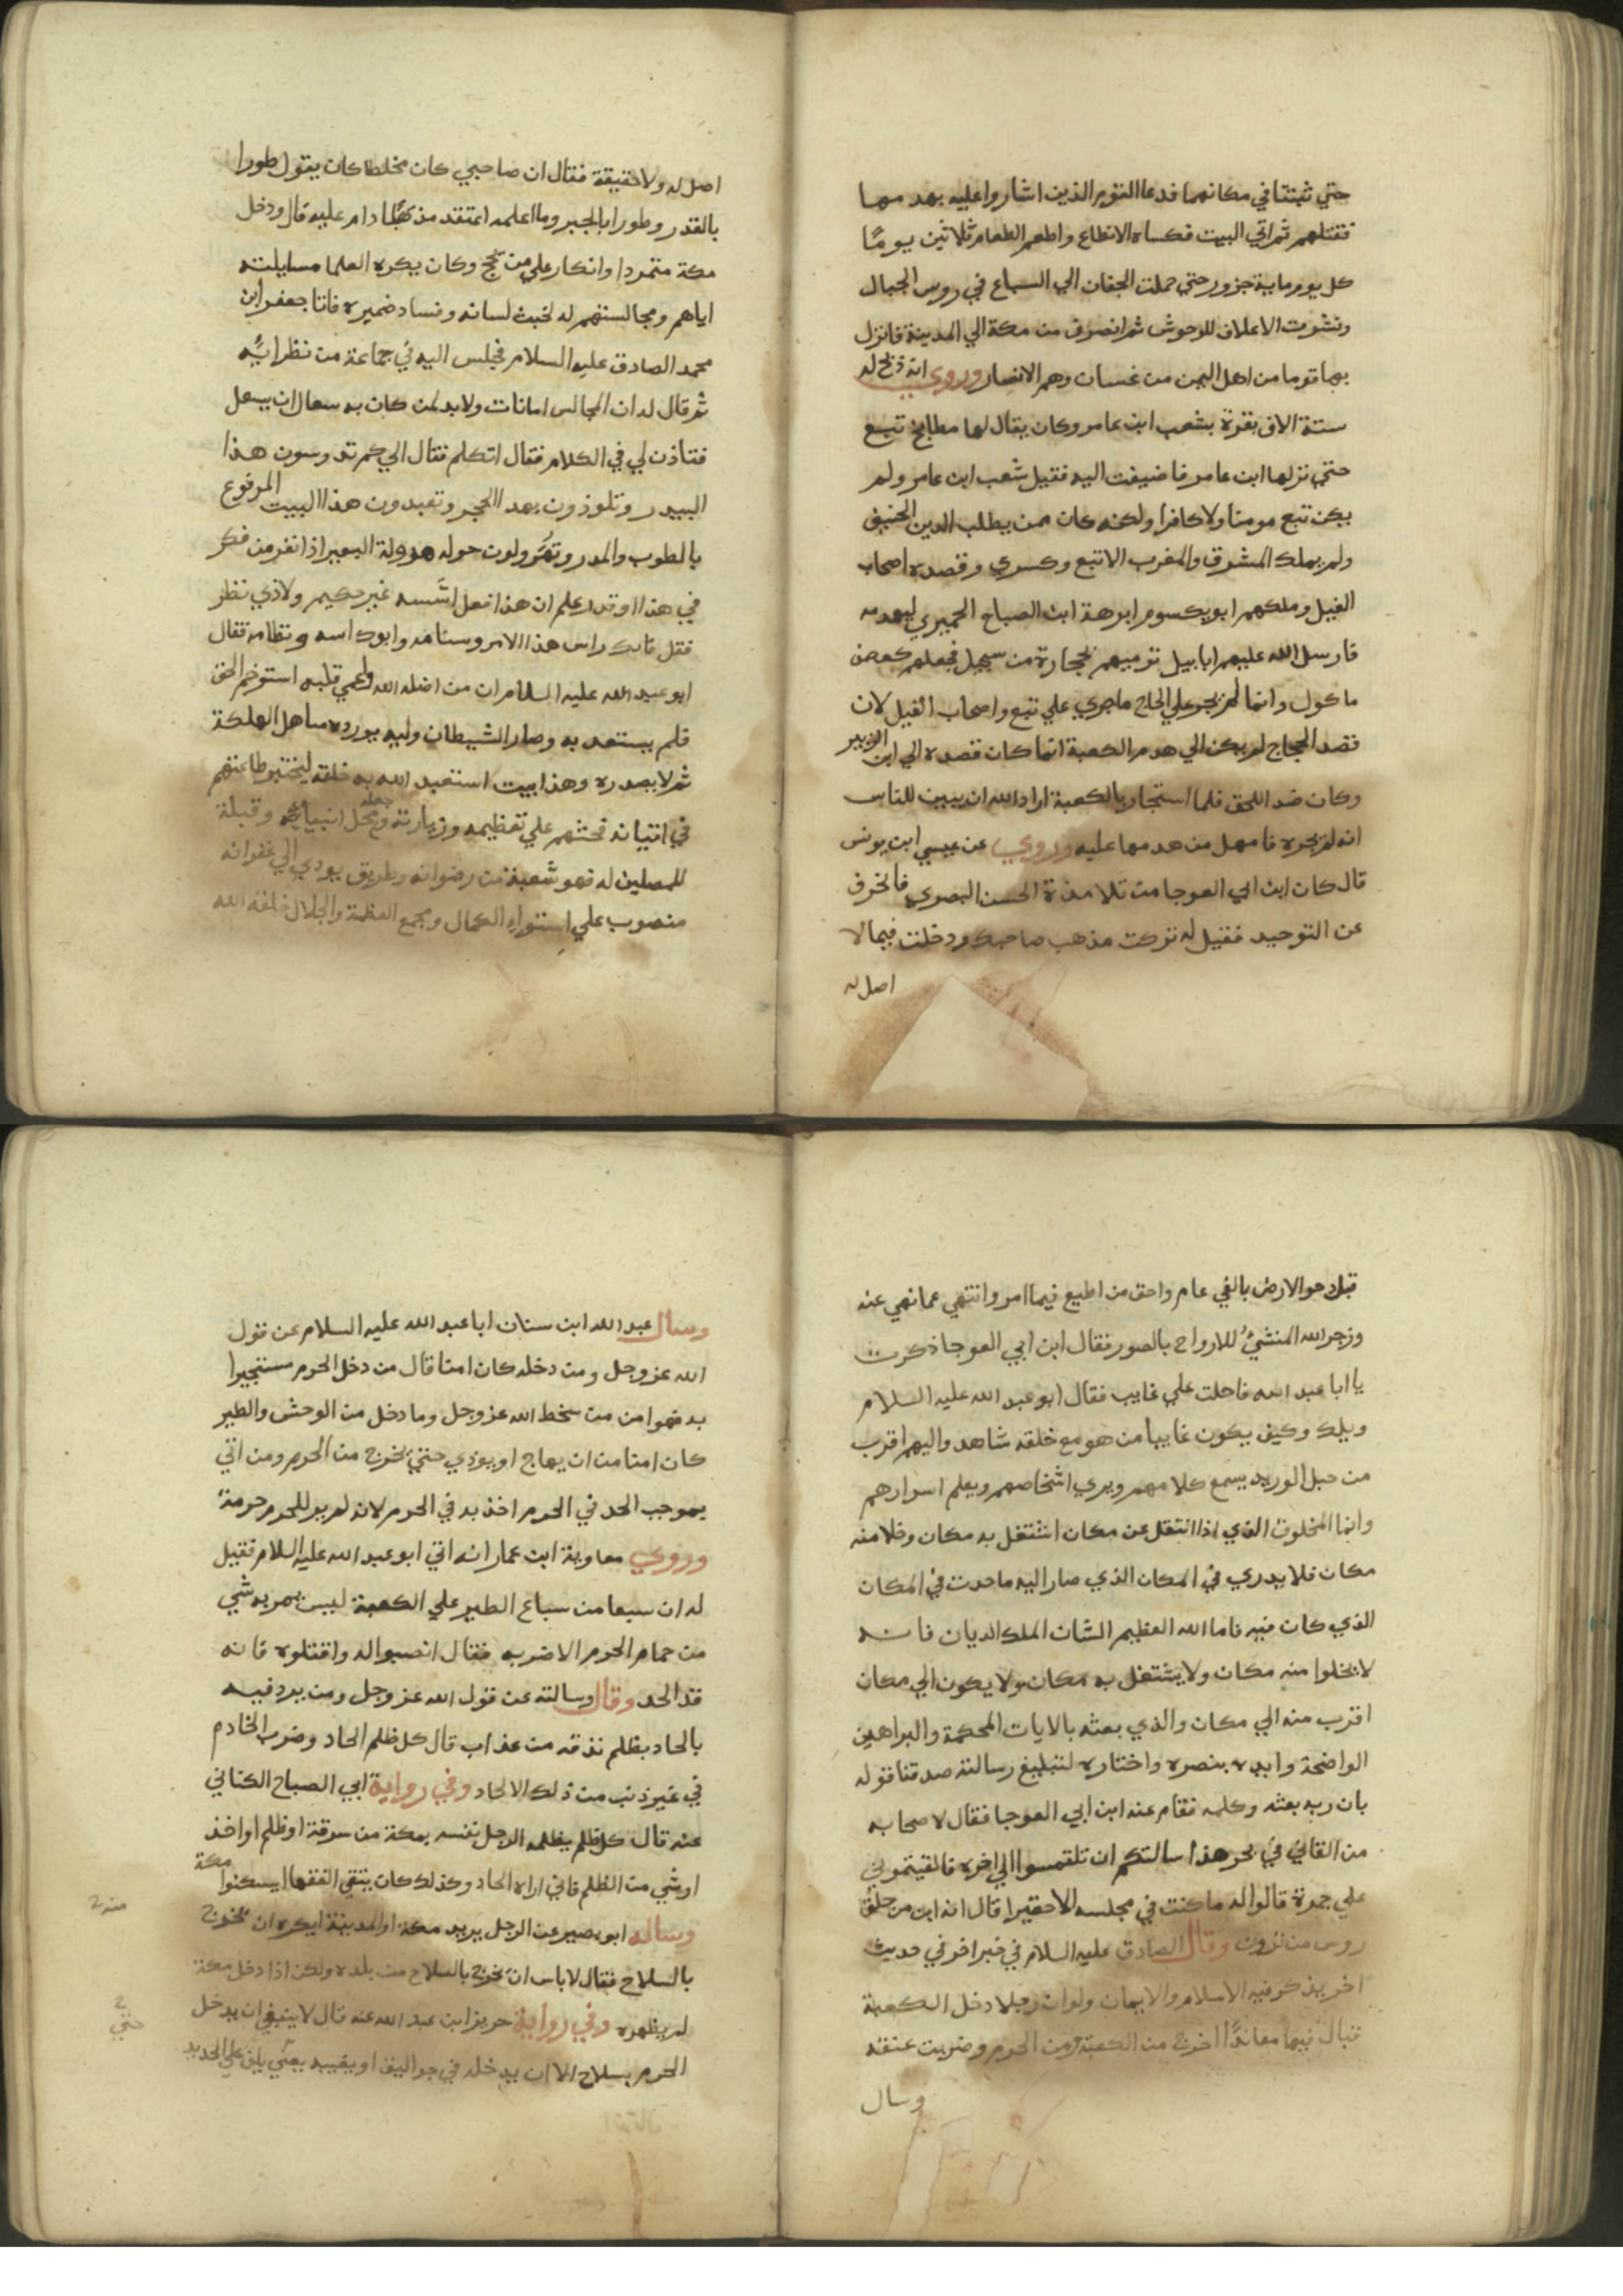 حتي ثبتتا في مكانهما فدعا القوم الذين اشاروا عليه بهدمها
فقتلهم ثم اتي البيت فكساه الانطاع واطعم الطعام ثلاثين يومًا
كل يوم ماية جزور حتي حملت الجفان الي السباع في روس الجبال
ونشرت الاعلاف للوحوش ثم انصرف من مكة الي المدينة فانزل
بها قوما من اهل اليمن من غسان وهم الانصار وروي انه ذبح له
ستة الاف بقرة بشعب ابن عامر وكان يقال لها مطابخ تبع
حتي نزلها ابن عامر فاضيفت اليه فقيل شعب ابن عامر ولم
يكن تبع مومنا ولا كافرا ولكنه كان ممن يطلب الدين الحنيف
ولم يملك المشرق والمغرب الا تبع وكسري وقصده اصحاب
الفيل وملكهم ابو يكسوم ابرهة ابن الصباح الحميري ليهدمه
فارسل الله عليهم ابابيل ترميهم بحجارة من سجيل فجعلهم كعصف
ماكول وانما لم يجر علي الحاج ماجري علي تبع واصحاب الفيل لان
قصد الحجاج لم يكن الي هدم الكعبة انما كان قصده الي ابن الزبير
وكان ضد اللحق فلما استجار بالكعبة اراد الله ان يبين للناس
انه لم يجره فامهل من هدمها عليه وروي عن عيسي ابن يونس
قال كان ابن ابي العوجا من تلامذة الحسن البصري فانحرف
عن التوحيد فقيل له تركت مذهب صاحبك ودخلت فيما لا
اصل له
اصل له ولا حقيقة فقال ان صاحبي كان مخلطا كان يقول طورا
بالقدر وطورا بالجبر وما اعلمه اعتقد مذهبًا دام عليه قال ودخل
مكة متمردا وانكار علي من حج وكان يكره العلما مسايلته
اياهم ومجالستهم له لخبث لسانه وفساد ضميره فاتا جعفر ابن
محمد الصادق عليه السلام فجلس اليه في جماعة من نظرايه
ثم قال له ان المجالس امانات ولا بد لمن كان به سعال ان يسعل
فتاذن لي في الكلام فقال اتكلم فقال الي كم تدوسون هذا
البيدر وتلوذون بهذا الحجر وتعبدون هذا البيت المرفوع
بالطوب والمدر وتهرولون حوله هرولة البعير اذا نفر من فكر
في هذا اوقدر علم ان هذا فعل اسّسه غير حكيم ولا ذي نظر
فقل فانك راس هذا الامر وسنامه وابوك اسه ونظامه فقال
ابو عبد الله عليه السلام ان من اضله الله واعمي قلبه استوخم الحق
فلم يستعد به وصار الشيطان وليه يورده مناهل الهلكة
ثم لا يصدره وهذا بيت استعبد الله به خلقه ليختبر طاعتهم
في اتيانه فحثهم علي تعظيمه وزيارته وجعله محل انبيايه وقبلة
للمصلين له فهو شعبة من رضوانه وطريق يودي الي غفرانه
منصوب علي استواء الكمال ومجمع العظمة والجلال خلقه الله
قبل دحو الارض بالفي عام واحق من اطيع فيما امر وانتهي عما نهي عنه
وزجر الله المنشيُ للارواح بالصور فقال ابن ابي العوجا ذكرت
يا ابا عبد الله فاحلت علي غايب فقال ابو عبد الله عليه السلام
ويلك وكيف يكون غايبا من هو مع خلقه شاهد واليهم اقرب
من حبل الوريد يسمع كلامهم ويري اشخاصهم ويعلم اسرارهم
وانما المخلوق الذي اذا انتقل عن مكان اشتغل به مكان وخلا منه
مكان فلا يدري في المكان الذي صار اليه ما حدث في المكان
الذي كان فيه فاما الله العظيم الشان الملك الديان فانه
لا يخلوا منه مكان ولا يشتغل به مكان ولا يكون الي مكان
اقرب منه الي مكان والذي بعثه بالايات المحكمة والبراهين
الواضحة وايده بنصره واختاره لتبليغ رسالته صدقنا قوله
بان ربه بعثه وكلمه فقام عنه ابن ابي العوجا فقال لاصحابه
من القاني في بحر هذا سالتكم ان تلتمسوا الي اخره فالقيتموني
علي جمرة قالوا له ما كنت في مجلسه الا حقيرا قال انه ابن من حلق
روس من ترون وقال الصادق عليه السلام في خبر اخر في حديث
اخر يذكر فيه الاسلام والايمان ولو ان رجلا دخل الكعبة
فبال فيها معاندًا اخرج من الكعبة ومن الحرم وضربت عنقه
وسال
وسال عبد الله ابن سنان ابا عبد الله عليه السلام عن قول
الله عز وجل ومن دخله كان امنا قال من دخل الحرم مستجيرا
به فهو امن من سخط الله عز وجل وما دخل من الوحش والطير
كان امنا من ان يهاج او يوذي حتي يخرج من الحرم ومن اتي
بموجب الحد في الحرم اخذ به في الحرم لانه لم ير للحرم حرمةً
وروي معاوية ابن عمار انه اتي ابو عبد الله عليه السلام فقيل
له ان سبعا من سباع الطير علي الكعبة ليس يمر به شي
من حمام الحرم الا ضربه فقال انصبوا له واقتلوه فانه
قد الحد وقال وسالته عن قول الله عز وجل ومن يرد فيه
بالحاد بظلم نذقه من عذاب قال كل ظلم الحاد وضرب الخادم
في غير ذنب من ذلك الالحاد وفي رواية ابي الصباح الكناني
عنه قال كل ظلم يظلمه الرجل نفسه بمكة من سرقة او ظلم او اخذ
او شي من الظلم فاني اراه الحاد وكذلك كان يتقي الفقها ايسكنوا مكة
وساله ابو بصير عن الرجل يريد مكة او المدينة ايكره ان يخرج
منه ح
بالسلاح فقال لا باس ان يخرج بالسلاح من بلده ولكن اذا دخل مكة
لم يظهره وفي رواية حريز ابن عبد الله عنه قال لا ينبغي ان يدخل
الحرم بسلاح الا ان يدخله في جواليق او يغيبه يعني يلف علي الحديد